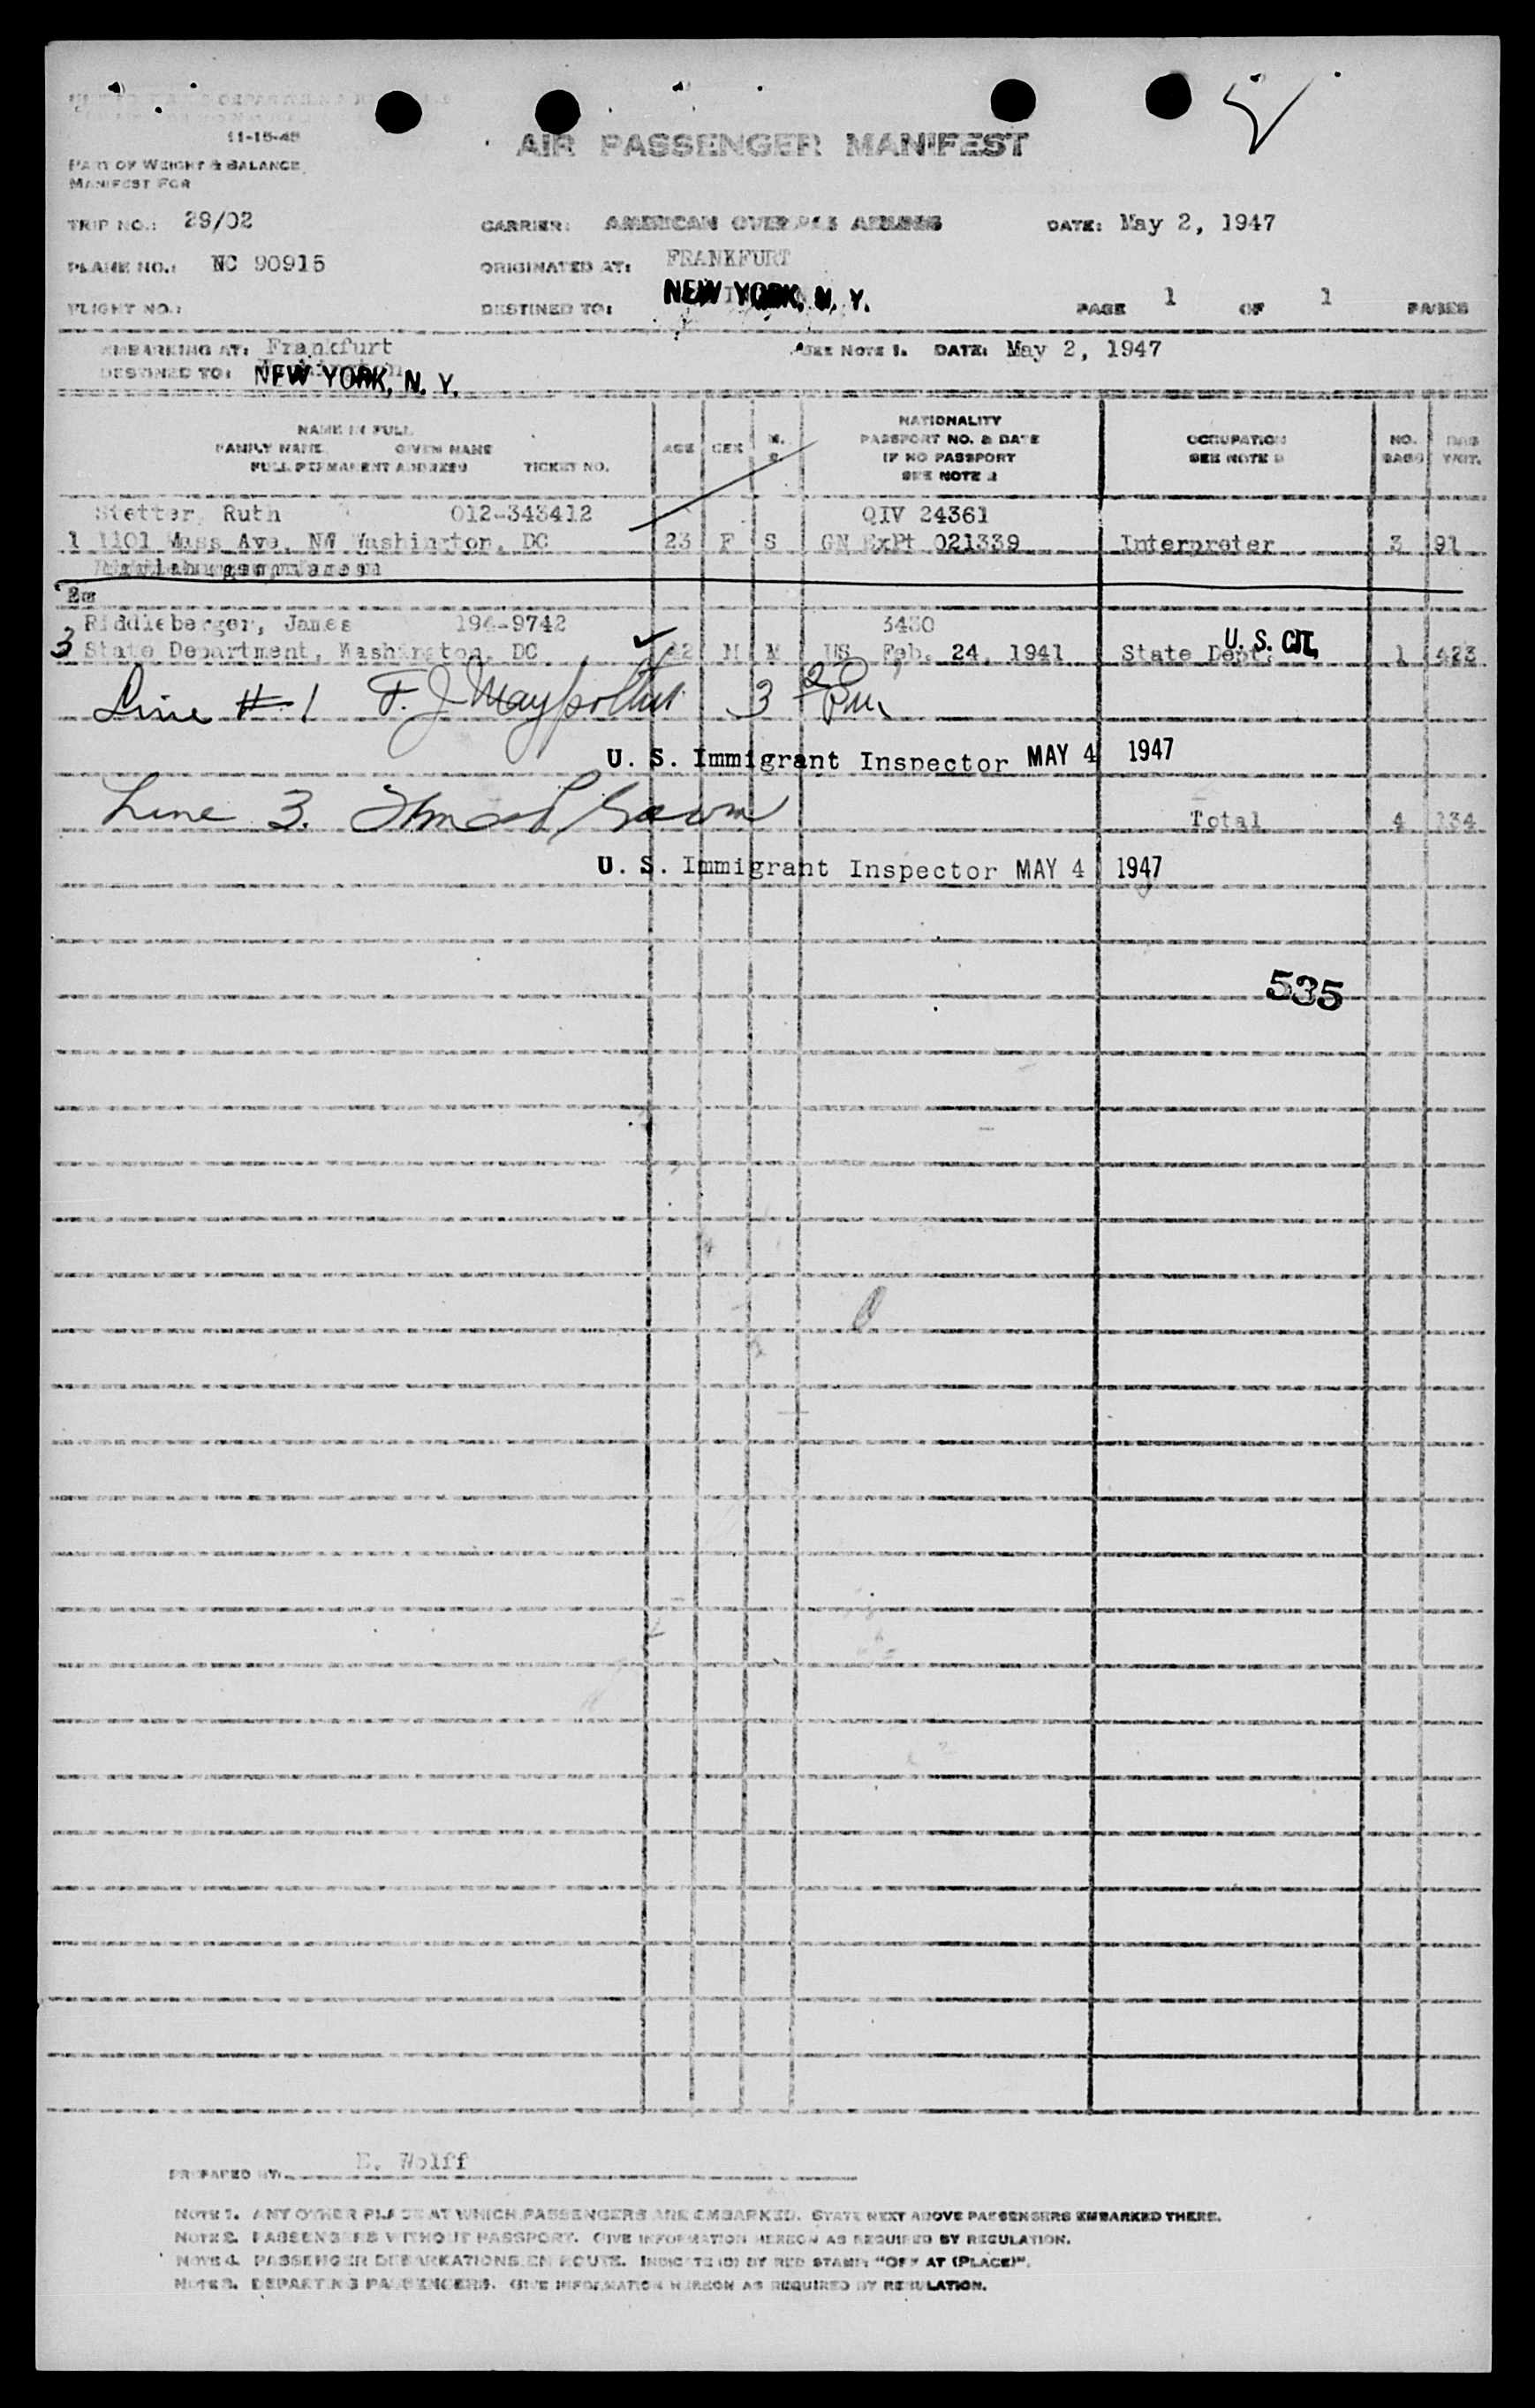 11-15-45
AIR PASSENGER MANIFEST
PART OF WEIGHT & BALANCE
MANIFEST FOR
TRIP NO.: 29/02 CARRIER: AMERICAN OVERSEAS AIRLINES DATE: May 2, 1947
PLANE NO.: NC 90915 ORIGINATED AT: FRANKFURT
FLIGHT NO.: DESTINED TO: NEW YORK, N. Y. PAGE 1 OF 1 PAGES
EMBARKING AT: Frankfurt SEE NOTE 1. DATE: May 2, 1947
DESTINED TO: NEW YORK, N. Y.
NAME IN FULL
FAMILY NAME GIVEN NAME
FULL PERMANENT ADDRESS TICKET NO.
AGE SEX M. S.
NATIONALITY
PASSPORT NO. & DATE
IF NO PASSPORT
SEE NOTE 2
OCCUPATION
SEE NOTE 3
NO. BAGS
BAG WGT.
Stetter, Ruth 012-343412 QIV 24361
1 1101 Mass Ave, NW Washington, DC 23 F S GN ExPt 021339 Interpreter 3 91
Riddleberger, James 194-9742 3430
3 State Department, Washington, DC 42 M M US Feb. 24, 1941 State Dept. U. S. CIT. 1 423
Line # 1 F. J. 3 20 Pm
U. S. Immigrant Inspector MAY 4 1947
Line 3.
Total 4 134
U. S. Immigrant Inspector MAY 4 1947
535
PREPARED BY: E. Wolff
NOTE 1. ANY OTHER PLACE AT WHICH PASSENGERS ARE EMBARKED. STATE NEXT ABOVE PASSENGERS EMBARKED THERE.
NOTE 2. PASSENGERS WITHOUT PASSPORT. GIVE INFORMATION HEREON AS REQUIRED BY REGULATION.
NOTE 4. PASSENGER DEBARKATIONS EN ROUTE. INDICATE (D) BY RED STAMP "OFF AT (PLACE)".
NOTE 3. DEPARTING PASSENGERS. GIVE INFORMATION HEREON AS REQUIRED BY REGULATION.